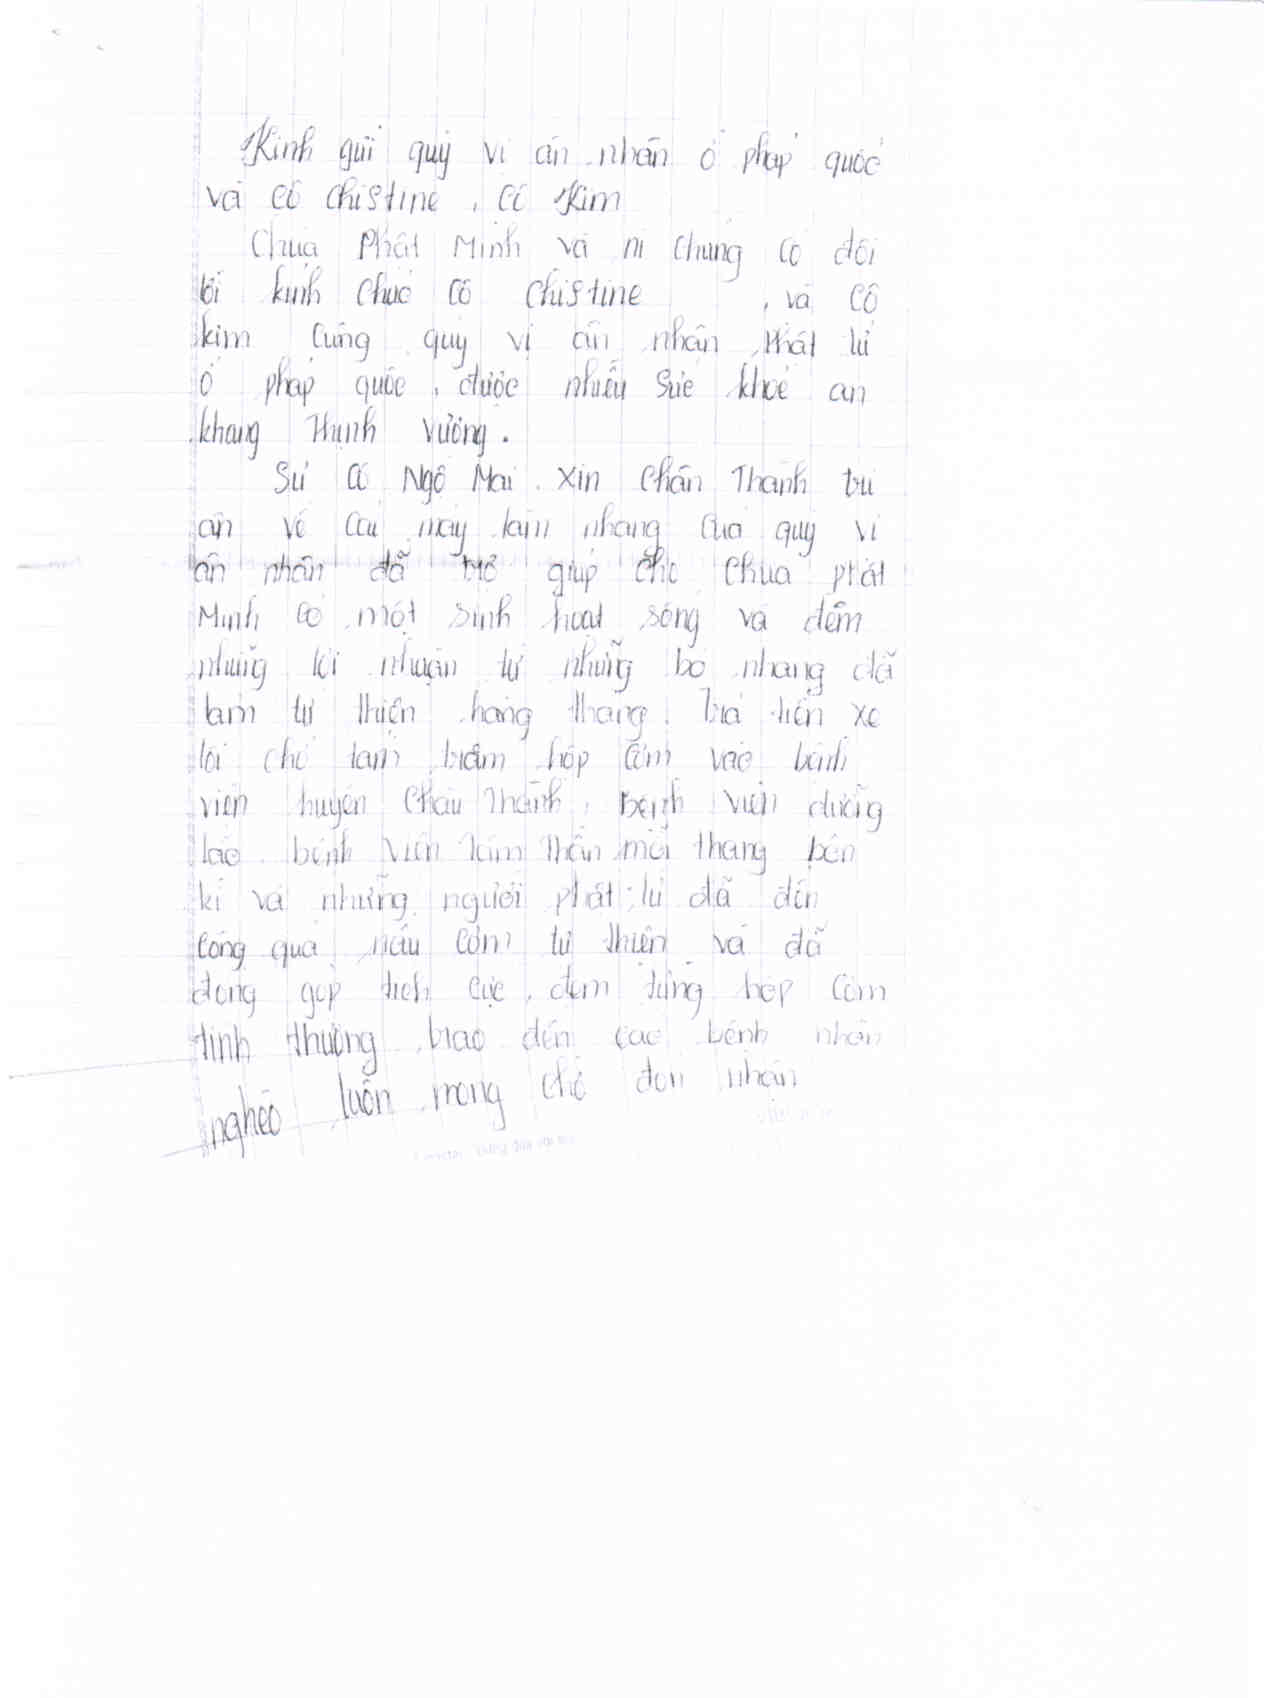 Kính gửi quý vị ân nhân ở pháp quốc
và cô chistine, cô Kim
Chùa Phật Minh và ni chúng có đôi
lời kính chúc cô chistine, và cô
kim cùng quý vị ân nhân phật tử
ở pháp quốc, được nhiều sức khoẻ an
khang thịnh vượng.
Sư cô Ngộ Mai. xin chân thành tri
ân về cái máy làm nhang của quý vị
ân nhân đã trợ giúp cho chùa phật
Minh có một sinh hoạt sống và đêm
những lợi nhuận từ những bó nhang đã
làm từ thiện hàng tháng. trả tiền xe
lôi chở tám trăm hộp cơm vào bệnh
viện huyện Châu thành, bệnh viện dưỡng
lão. bệnh viện tâm thần mỗi tháng bốn
kì và những người phật tử đã đến
công quả nấu cơm từ thiện và đã
đóng góp tích cực, đem từng hộp cơm
tình thương trao đến các bệnh nhân
nghèo luôn mong chờ đón nhận